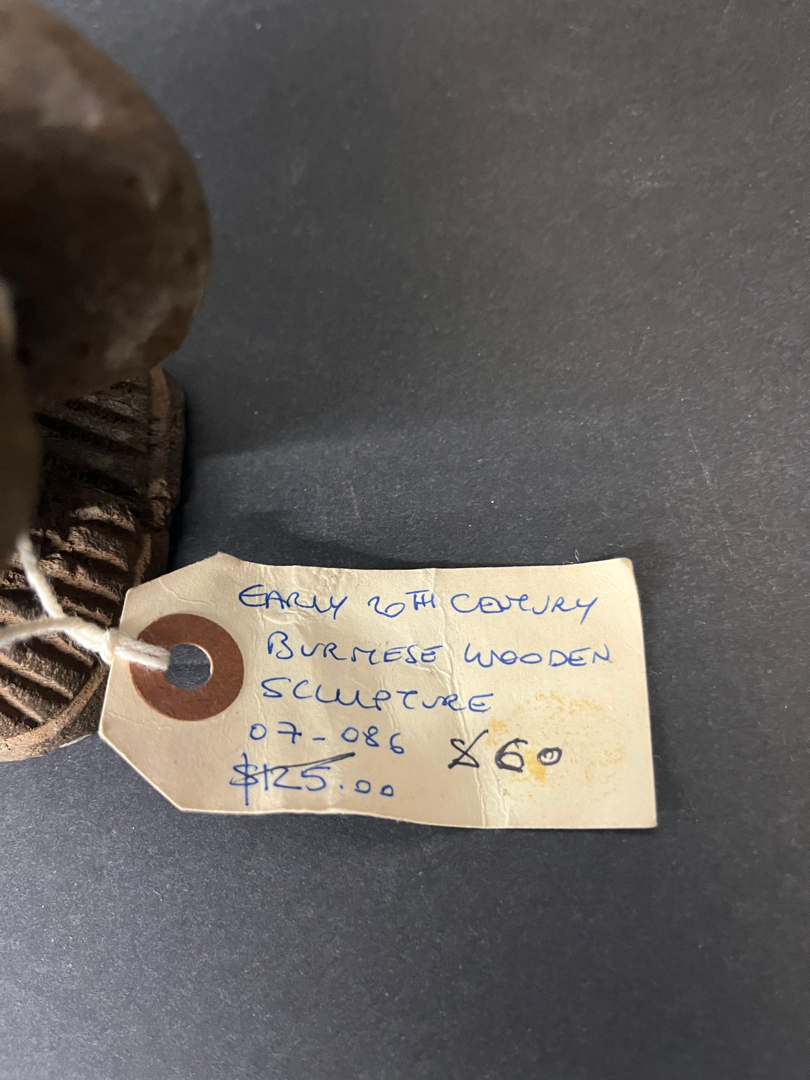 EARLY 20TH CENTURY
BURMESE WOODEN
SCULPTURE
07-086 $60
$125.00